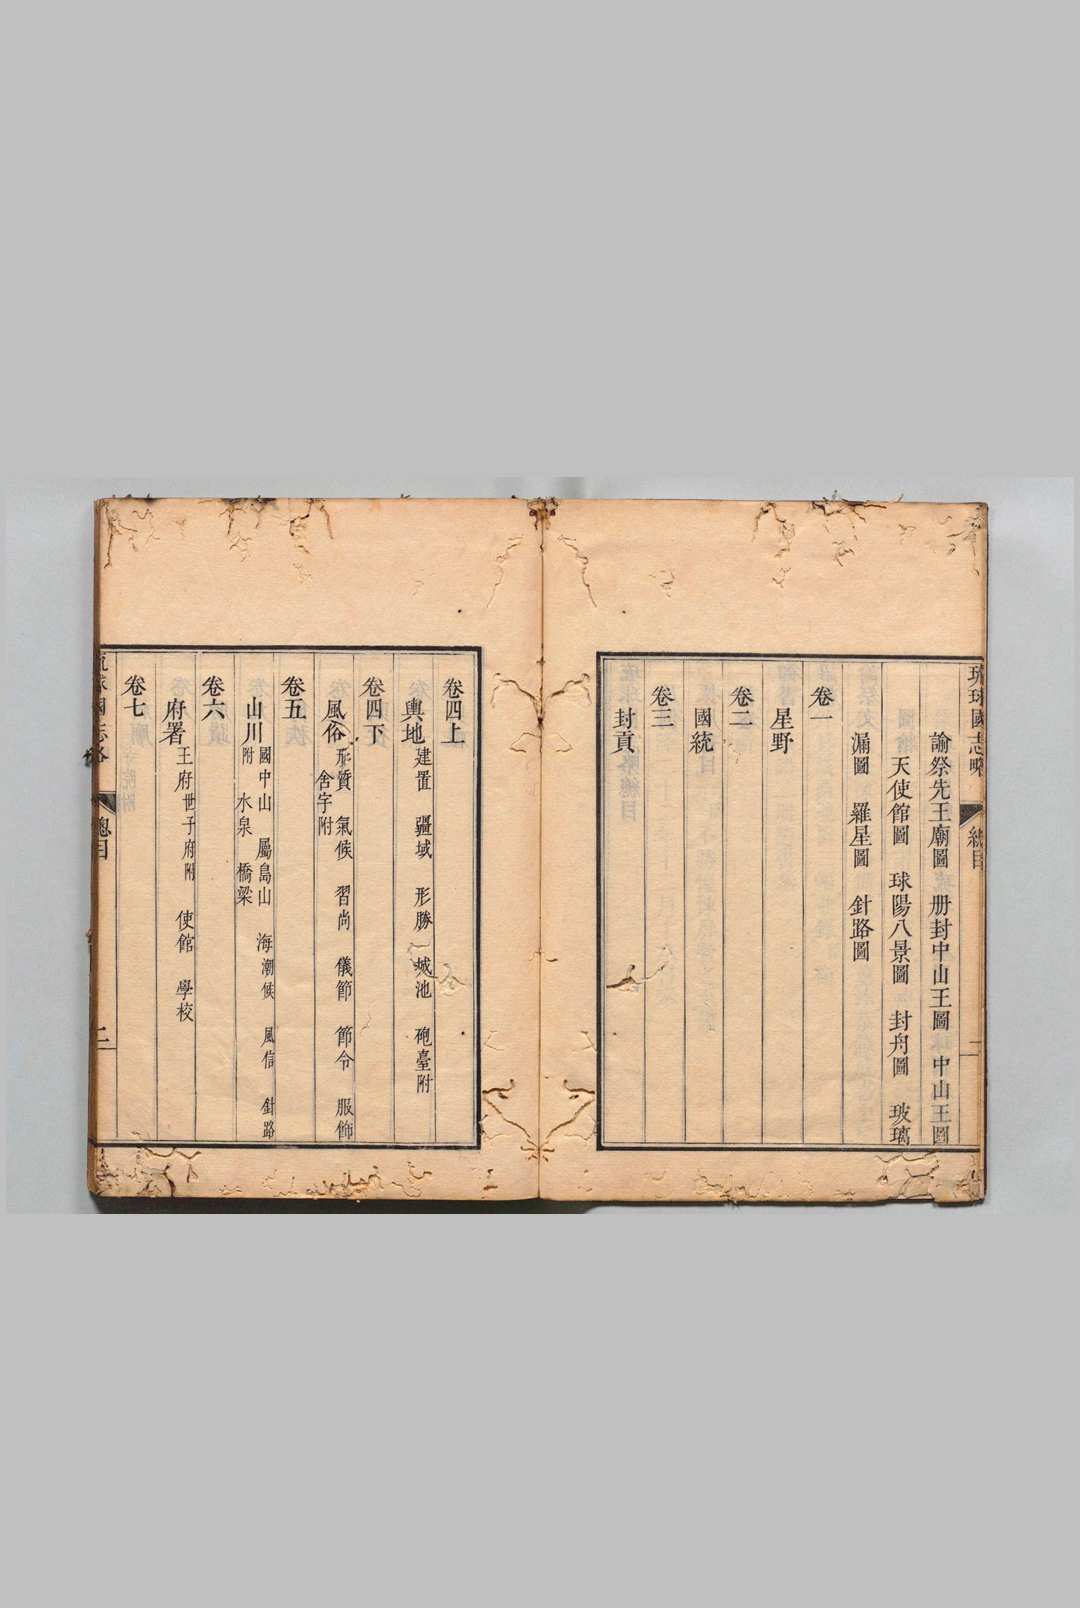 琉球國志略 總目 二
諭祭先王廟圖 册封中山王圖 中山王圖
天使館圖 球陽八景圖 封舟圖 玻璃
漏圖 羅星圖 針路圖
卷一
星野
卷二
國統
卷三
封貢
卷四上
輿地 建置 疆域 形勝 城池 砲臺附
卷四下
風俗 形質 氣候 習尚 儀節 節令 服飾
舍字附
卷五
山川 國中山 屬島山 海潮候 風信 針路
附 水泉 橋梁
卷六
府署 王府世子府附 使館 學校
卷七
球國志略 總目 二